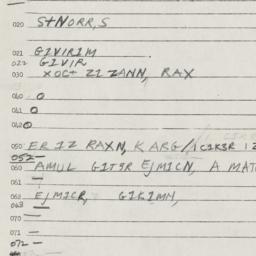 020 S+NORR,S
021 GIVIRIM
022 GIVIR
030 XOC+ ZIZANN, RAX
040 O
041 O
042 O
050 ERIZ RAXN, KARG/
052 —
060 AMUL GITSR EJMICN, A MAT
061 —
062 EJMICR, GIKIMN,
063 —
070
071 —
072 —